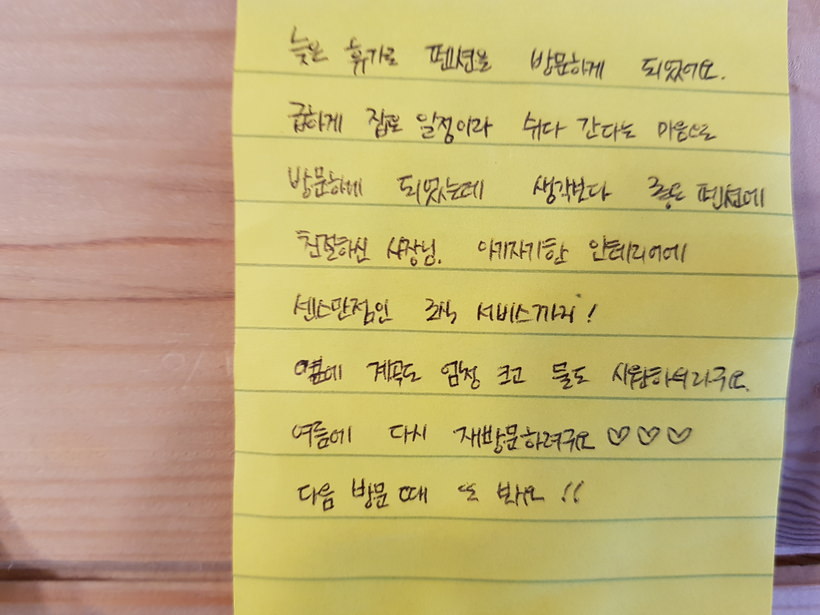 늦은 휴가로 펜션을 방문하게 되었어요.
급하게 잡은 일정이라 쉬다 간다는 마음으로
방문하게 되었는데 생각보다 좋은 펜션에
친절하신 사장님. 아기자기한 인테리어에
센스만점인 조식 서비스까지!
옆에 계곡도 엄청 크고 물도 시원하더라구요.
여름에 다시 재방문하려구요 ♡♡♡
다음 방문 때 또 봐요!!